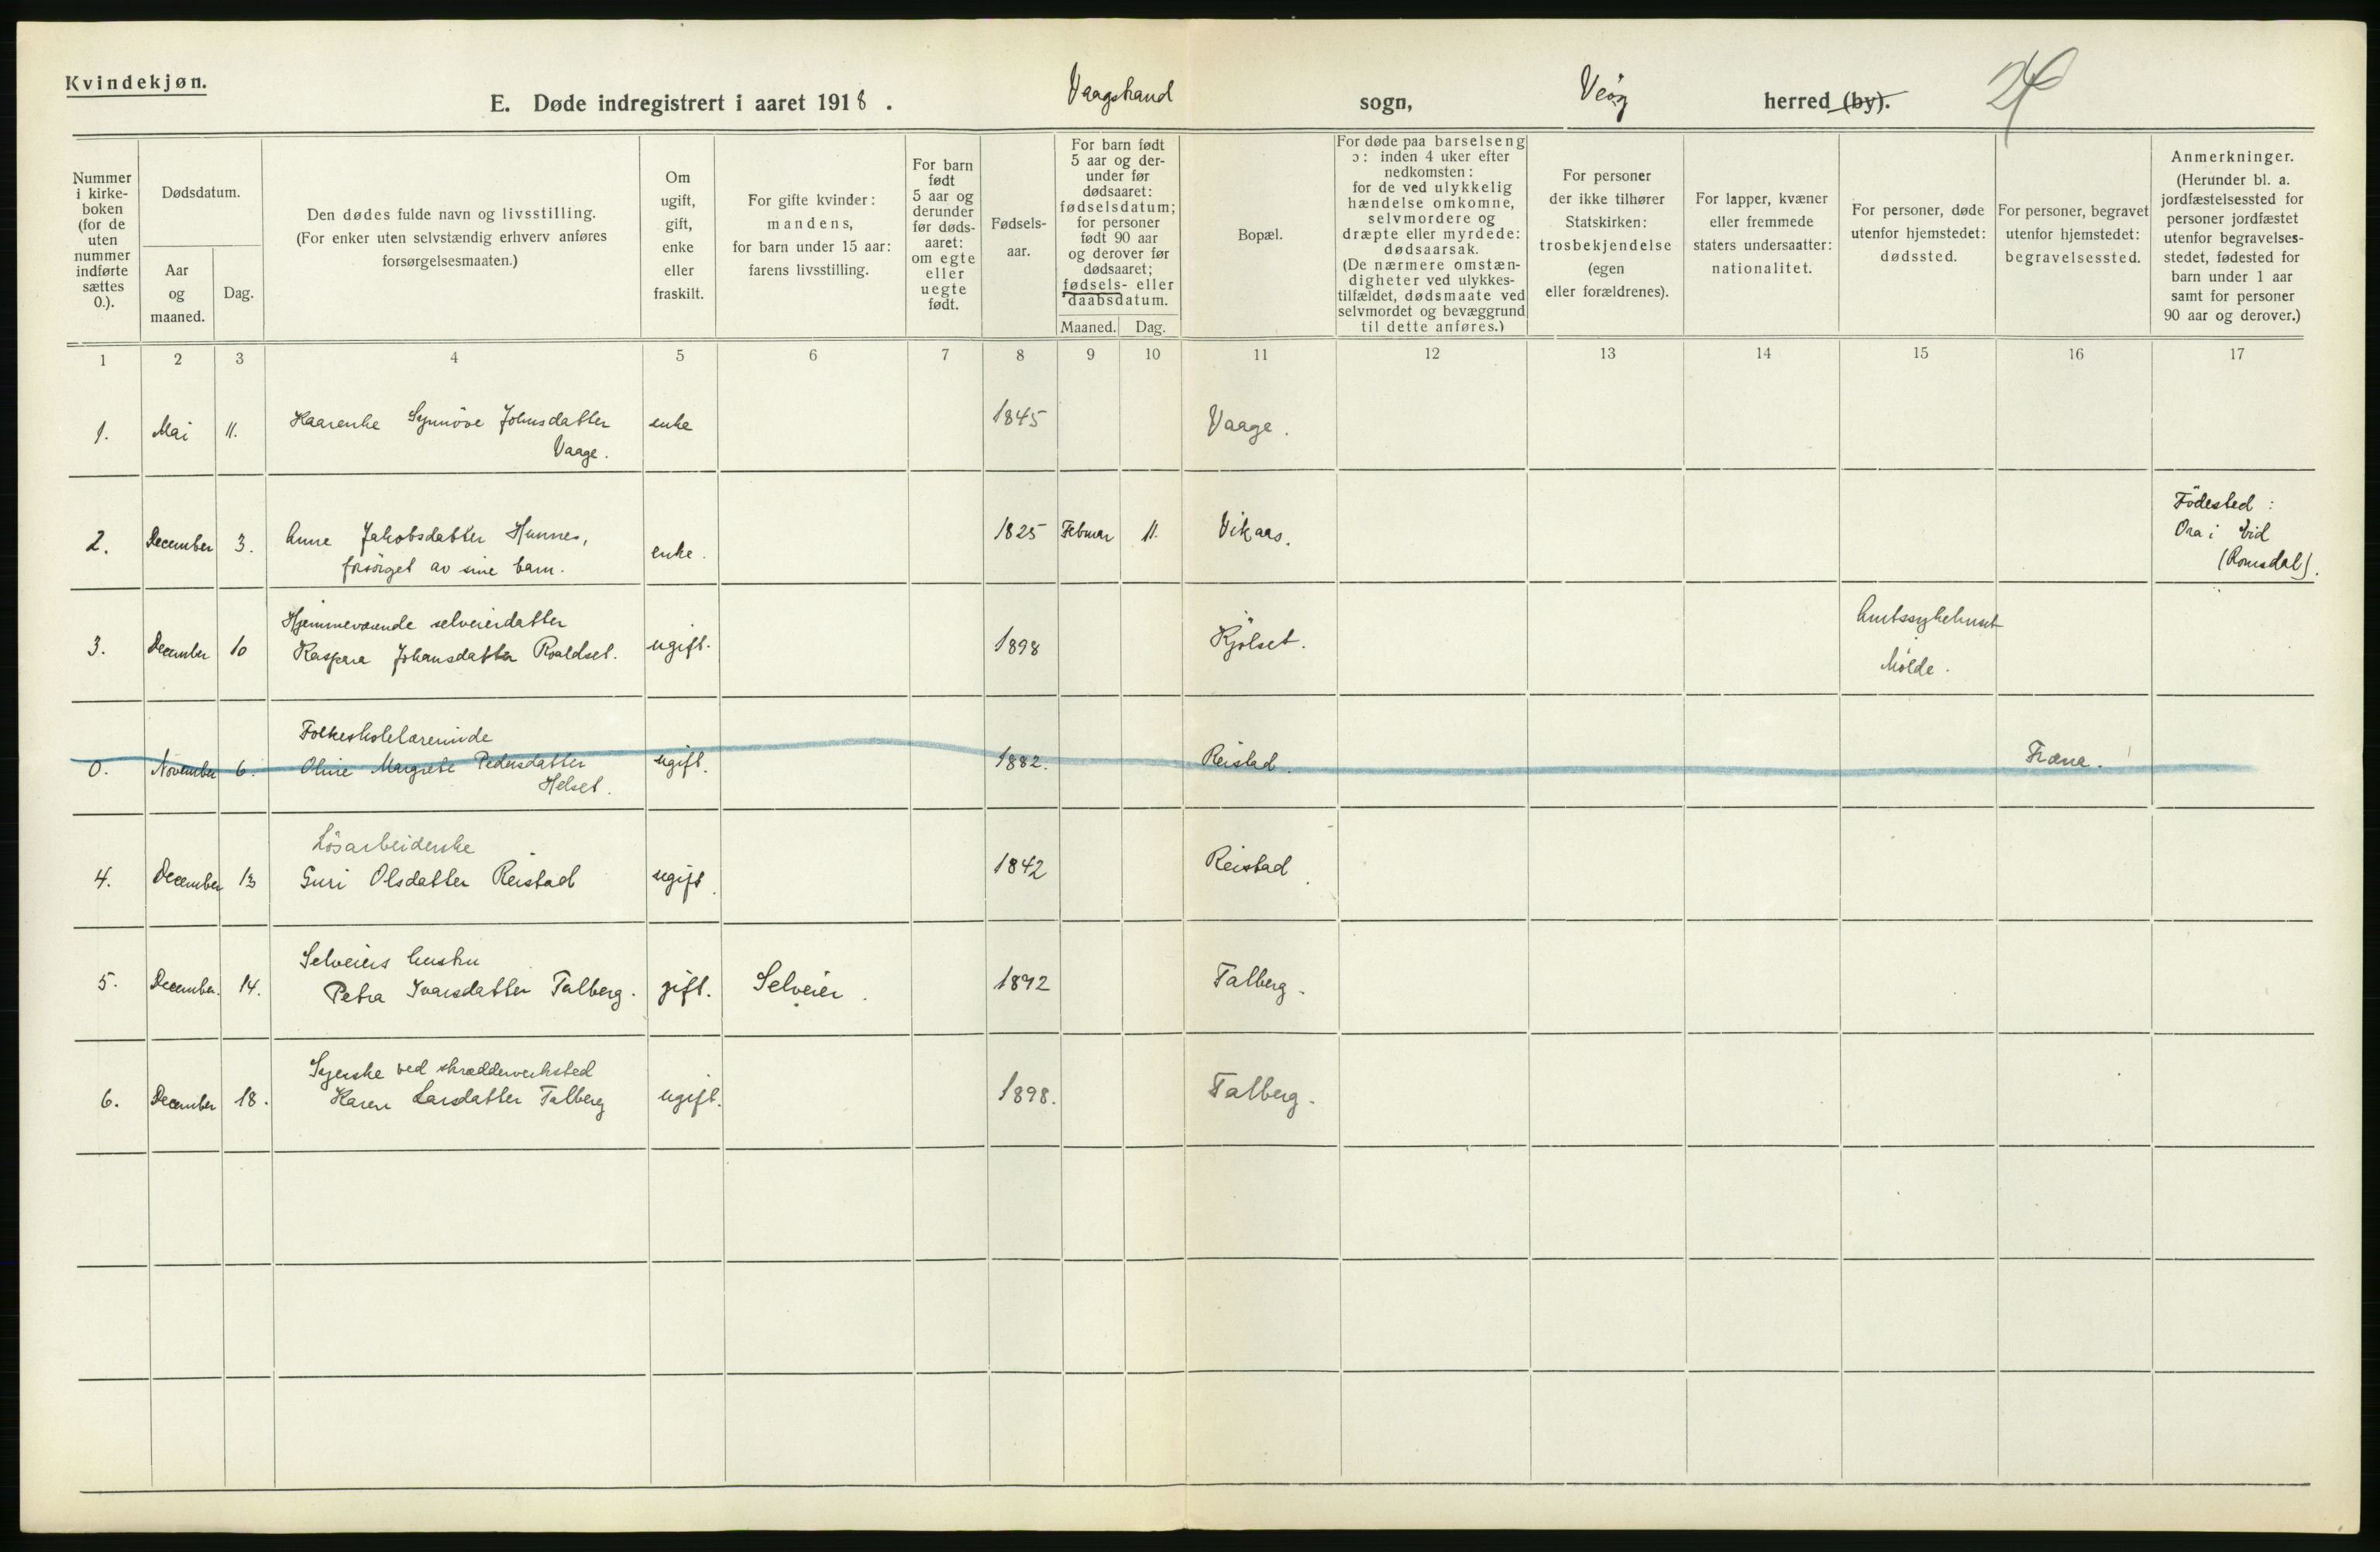 Kvindekjøn.
E. Døde indregistrert i aaret 1918. Vaagstrand sogn, Veøy herred (by).
Nummer i kirke-boken (for de uten nummer indførte sættes 0.).
Dødsdatum.
Aar og maaned.
Dag.
Den dødes fulde navn og livsstilling.
(For enker uten selvstændig erhverv anføres
forsørgelsesmaaten.)
Om ugift, gift, enke eller fraskilt.
For gifte kvinder: mandens, for barn under 15 aar: farens livsstilling.
For barn født 5 aar og derunder før døds-aaret: om egte eller uegte født.
Fødsels-aar.
For barn født 5 aar og der-under før dødsaaret: fødselsdatum; for personer født 90 aar og derover før dødsaaret; fødsels- eller daabsdatum.
Maaned. Dag.
Bopæl.
For døde paa barselseng ɔ: inden 4 uker efter nedkomsten: for de ved ulykkelig hændelse omkomne, selvmordere og dræpte eller myrdede: dødsaarsak. (De nærmere omstæn-digheter ved ulykkes-tilfældet, dødsmaate ved selvmordet og bevæggrund til dette anføres.)
For personer der ikke tilhører Statskirken: trosbekjendelse (egen eller forældrenes).
For lapper, kvæner eller fremmede staters undersaatter: nationalitet.
For personer, døde utenfor hjemstedet: dødssted.
For personer, begravet utenfor hjemstedet: begravelsessted.
Anmerkninger. (Herunder bl. a. jordfæstelsessted for personer jordfæstet utenfor begravelses-stedet, fødested for barn under 1 aar samt for personer 90 aar og derover.)
1 2 3 4 5 6 7 8 9 10 11 12 13 14 15 16 17
1. Mai 11. Synnöve Johnsdatter enke 1845 Vaage.
Vaage.
2. December 3. Anne Jakobsdatter Hunnes, enke. 1825 Februar 11. Vikaas. Födested:
forsörget av sine barn. Ora i Eid
(Romsdal).
Hjemmeværende selveierdatter
3. December 10 Kaspara Johansdatter Roaldset. ugift. 1898 Kjölset. Amtssykehuset
Molde.
Folkeskolelærerinde
0. November 6. Oline Margrete Pedersdatter ugift. 1882. Reistad. Fræna.
Helset.
Lösarbeiderske
4. December 13 Guri Olsdatter Reistad ugift. 1842 Reistad.
Selveiers hustru
5. December. 14. Petra Ivarsdatter Talberg. gift. Selveier. 1892 Talberg.
Syerske ved skrædderverksted
6. December 18. Karen Larsdatter Talberg ugift. 1898. Talberg.